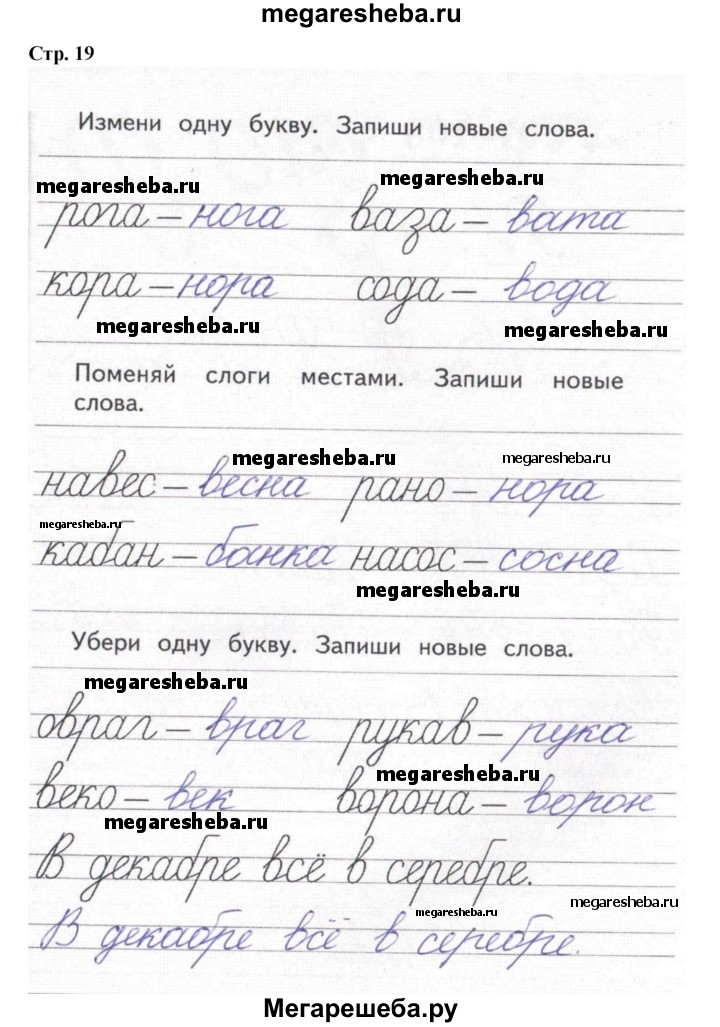 megaresheba.ru
Стр. 19
Измени одну букву. Запиши новые слова.
megaresheba.ru megaresheba.ru
рога – нога ваза – вата
кора – нора сода – вода
megaresheba.ru megaresheba.ru
Поменяй слоги местами. Запиши новые
слова.
megaresheba.ru megaresheba.ru
навес – весна рано – нора
megaresheba.ru
кабан – банка насос – сосна
megaresheba.ru
Убери одну букву. Запиши новые слова.
megaresheba.ru
овраг – враг рукав – рука
megaresheba.ru
веко – век ворона – ворон
megaresheba.ru
В декабре всё в серебре.
megaresheba.ru megaresheba.ru
В декабре всё в серебре.
Мегарешеба.ру